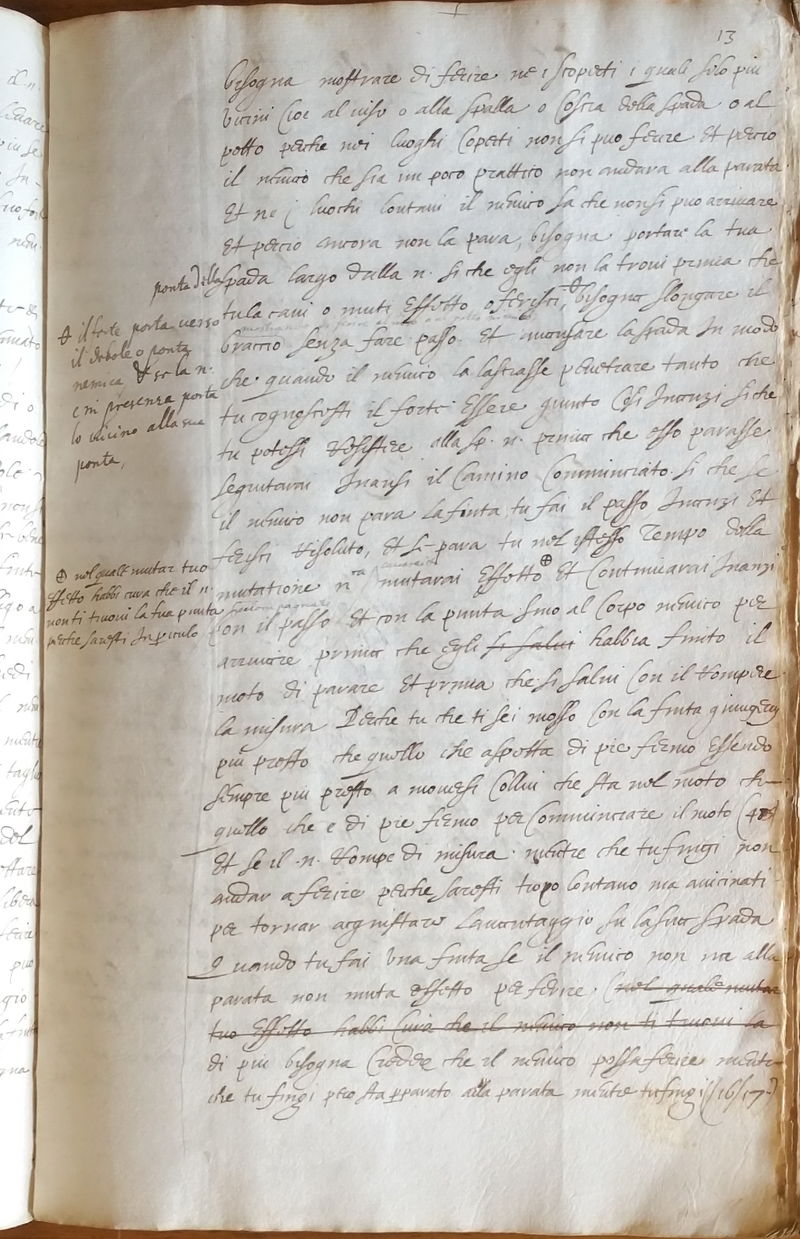 13
bisogna mostrare di ferire ne i scoperti i quali solo piu
vicini cioe al viso o alla spalla o coscia della spada o al
petto perche nei luoghi coperti non si puo ferire et percio
il nemico che sia un poco prattico non andara alla parata
et ne i luochi lontani il nemico sa che non si puo arrivare
et percio ancora non la para, bisogna portare la tua
ponta della
spada largo dalla n. si che egli non la trovi prima che
tu la cavi o muti effetto o ferisci, bisogna slongare il
braccio senza fare passo. et avisare la spada in modo
che quando il nemico la lasciasse penetrare tanto che
tu cognoscessi il forte essere gionto cosi inanzi si che
tu potessi resistere alla sp. n. prima che esso parasse
seguitarai inansi il camino comminciato. si che se
il nemico non para la finta tu fai il passo inanzi et
ferisci risoluto, et si para tu nel istesso tempo della
mutatione n.ra mutarai effetto ⊕ et continuarai inanzi
con il passo et con la punta sino al corpo nemico per
arrivare prima che egli si salvi habbia finito il
moto di parare et prima che si salvi con il rompere
la misura Perche tu che ti sei mosso con la finta giungerai
piu presto che quello che aspetta di pie fermo essendo
sempre piu presto a moversi collui che sta nel moto che
quello che e di pie fermo per comminciare il moto
et se il .n. rompe di misura. mentre che tu fingi non
andar a ferire perche saresti tropo lontano ma avicinati
per tornar acquistare l'avantaggio su la sua spada
Quando tu fai una finta se il nemico non va alla
parata non muta effetto per ferire. (nel quale mutar
tuo effetto habbi cura che il nemico non ti trovi la
di piu bisogna creder che il nemico possa ferire mentre
che tu fingi pero sta preparato alla parata mentre tu fingi (16)(17)
il forte porta verso
il debole o ponta
nemica se la n.
e in presenza porta
lo vicino alla sua
ponta,
⊕ nel quale mutar tuo
effetto habbi cura che il n.
non ti trovi la tua punta
perche saresti in periculo